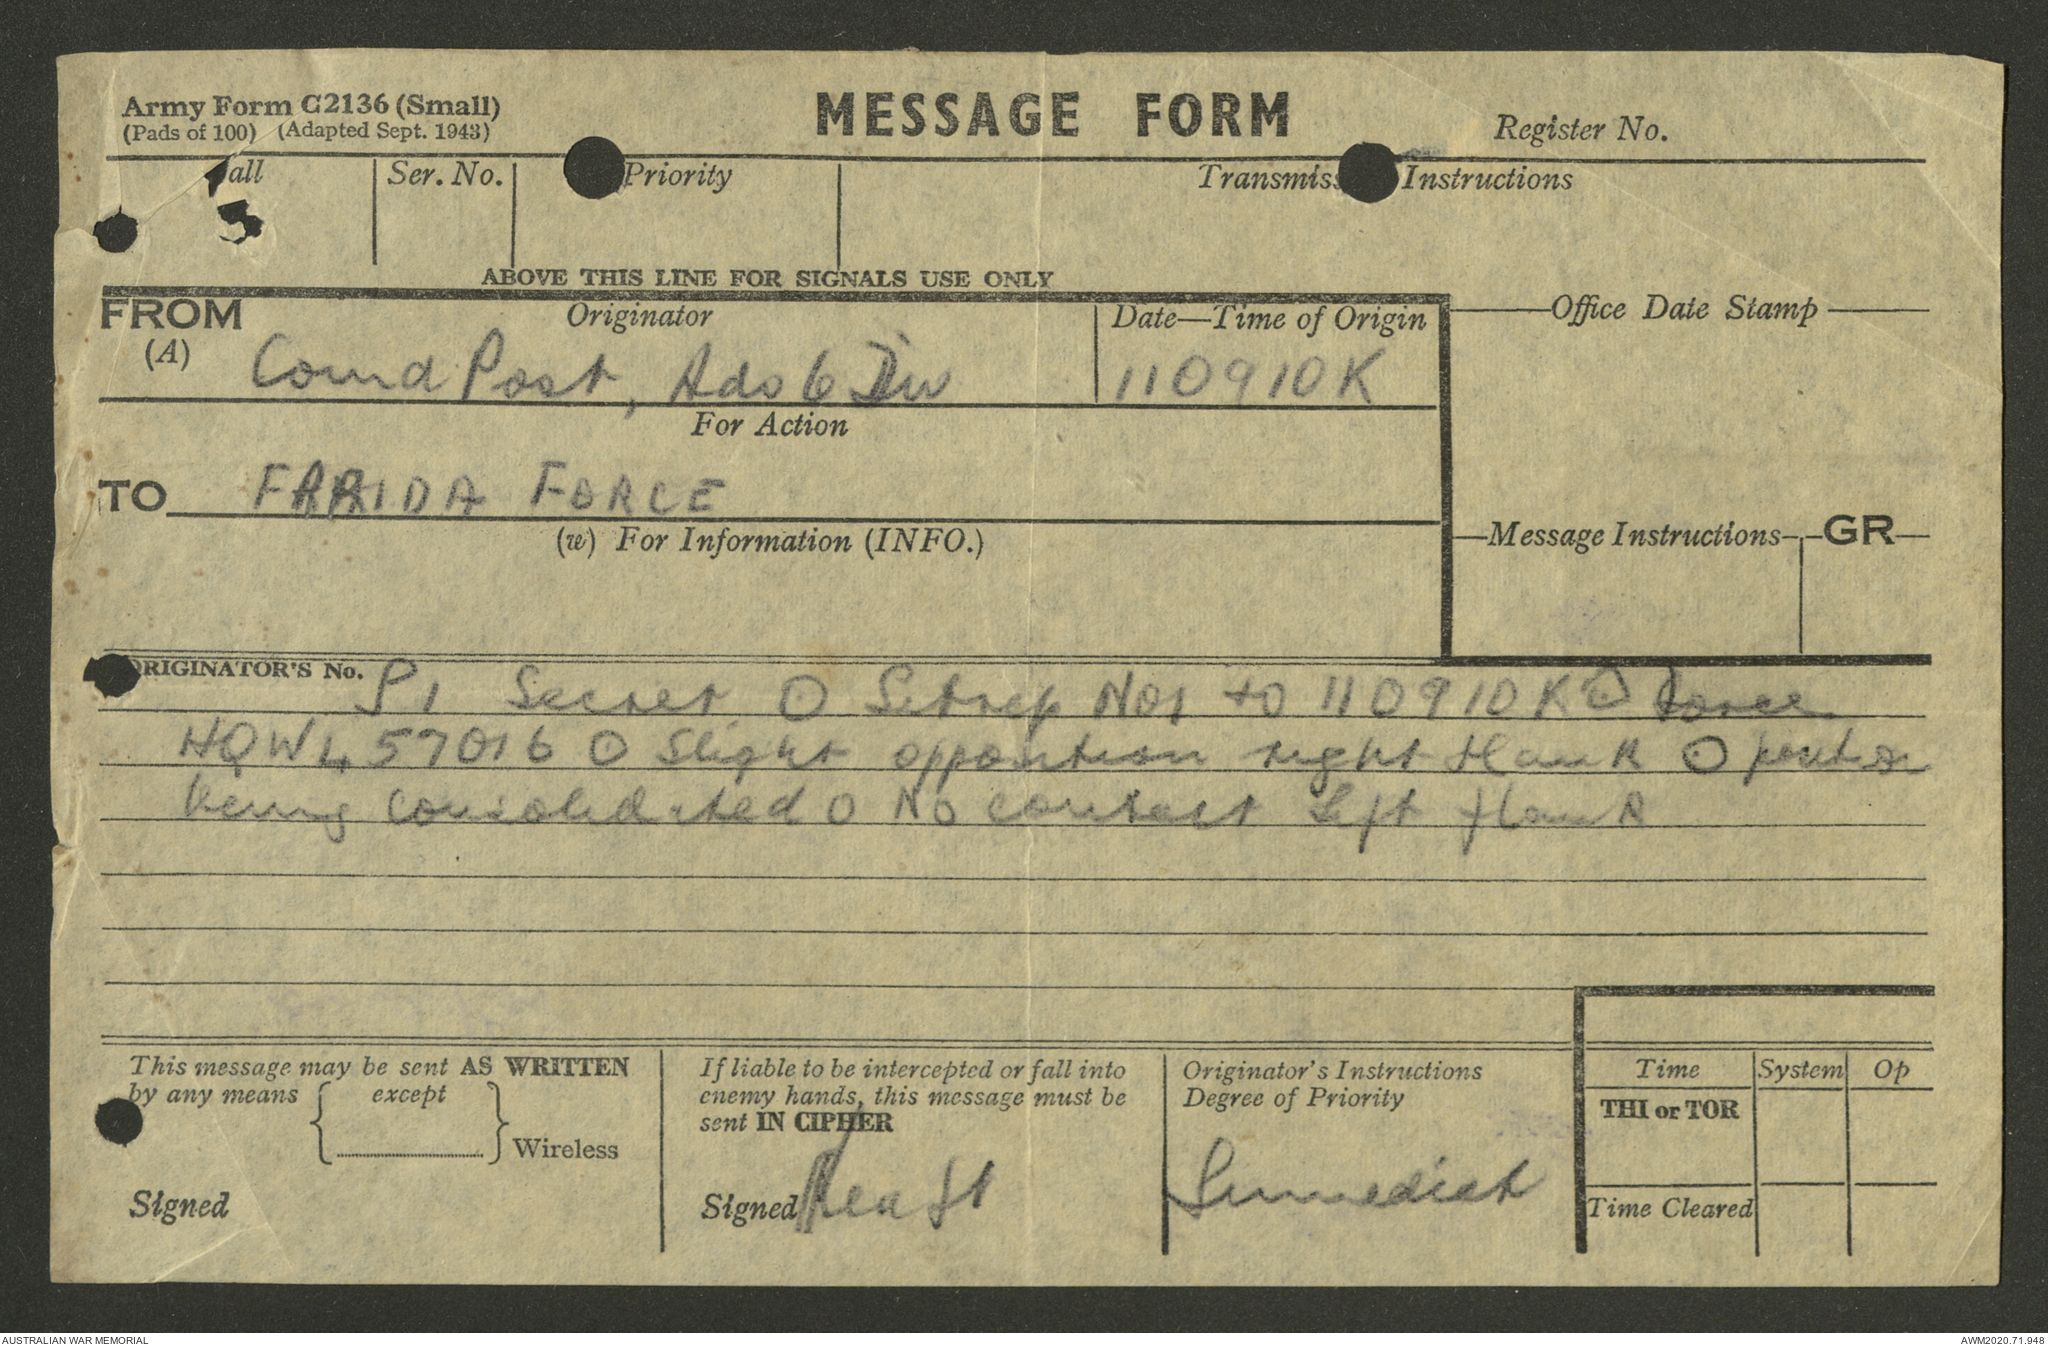 Army Form C2136 (Small)
(Pads of 100) (Adapted Sept. 1943)
MESSAGE FORM
Register No.
all
Ser. No.
Priority
Transmiss Instructions
ABOVE THIS LINE FOR SIGNALS USE ONLY
FROM
(A)
Originator
Date—Time of Origin
Office Date Stamp
Comd Post, Adv 6 Div
110910K
For Action
TO FARIDA FORCE
(w) For Information (INFO.)
Message Instructions
GR
ORIGINATOR'S No. Secret O Sitrep No1 to 110910K O Force
HQ W457016 O Slight opposition right flank O position
being consolidated O No contact left flank
This message may be sent AS WRITTEN
by any means { except
} Wireless
Signed
If liable to be intercepted or fall into
enemy hands, this message must be
sent IN CIPHER
Signed
Originator's Instructions
Degree of Priority
Immediate
Time
System
Op
THI or TOR
Time Cleared
AUSTRALIAN WAR MEMORIAL
AWM2020.71.948